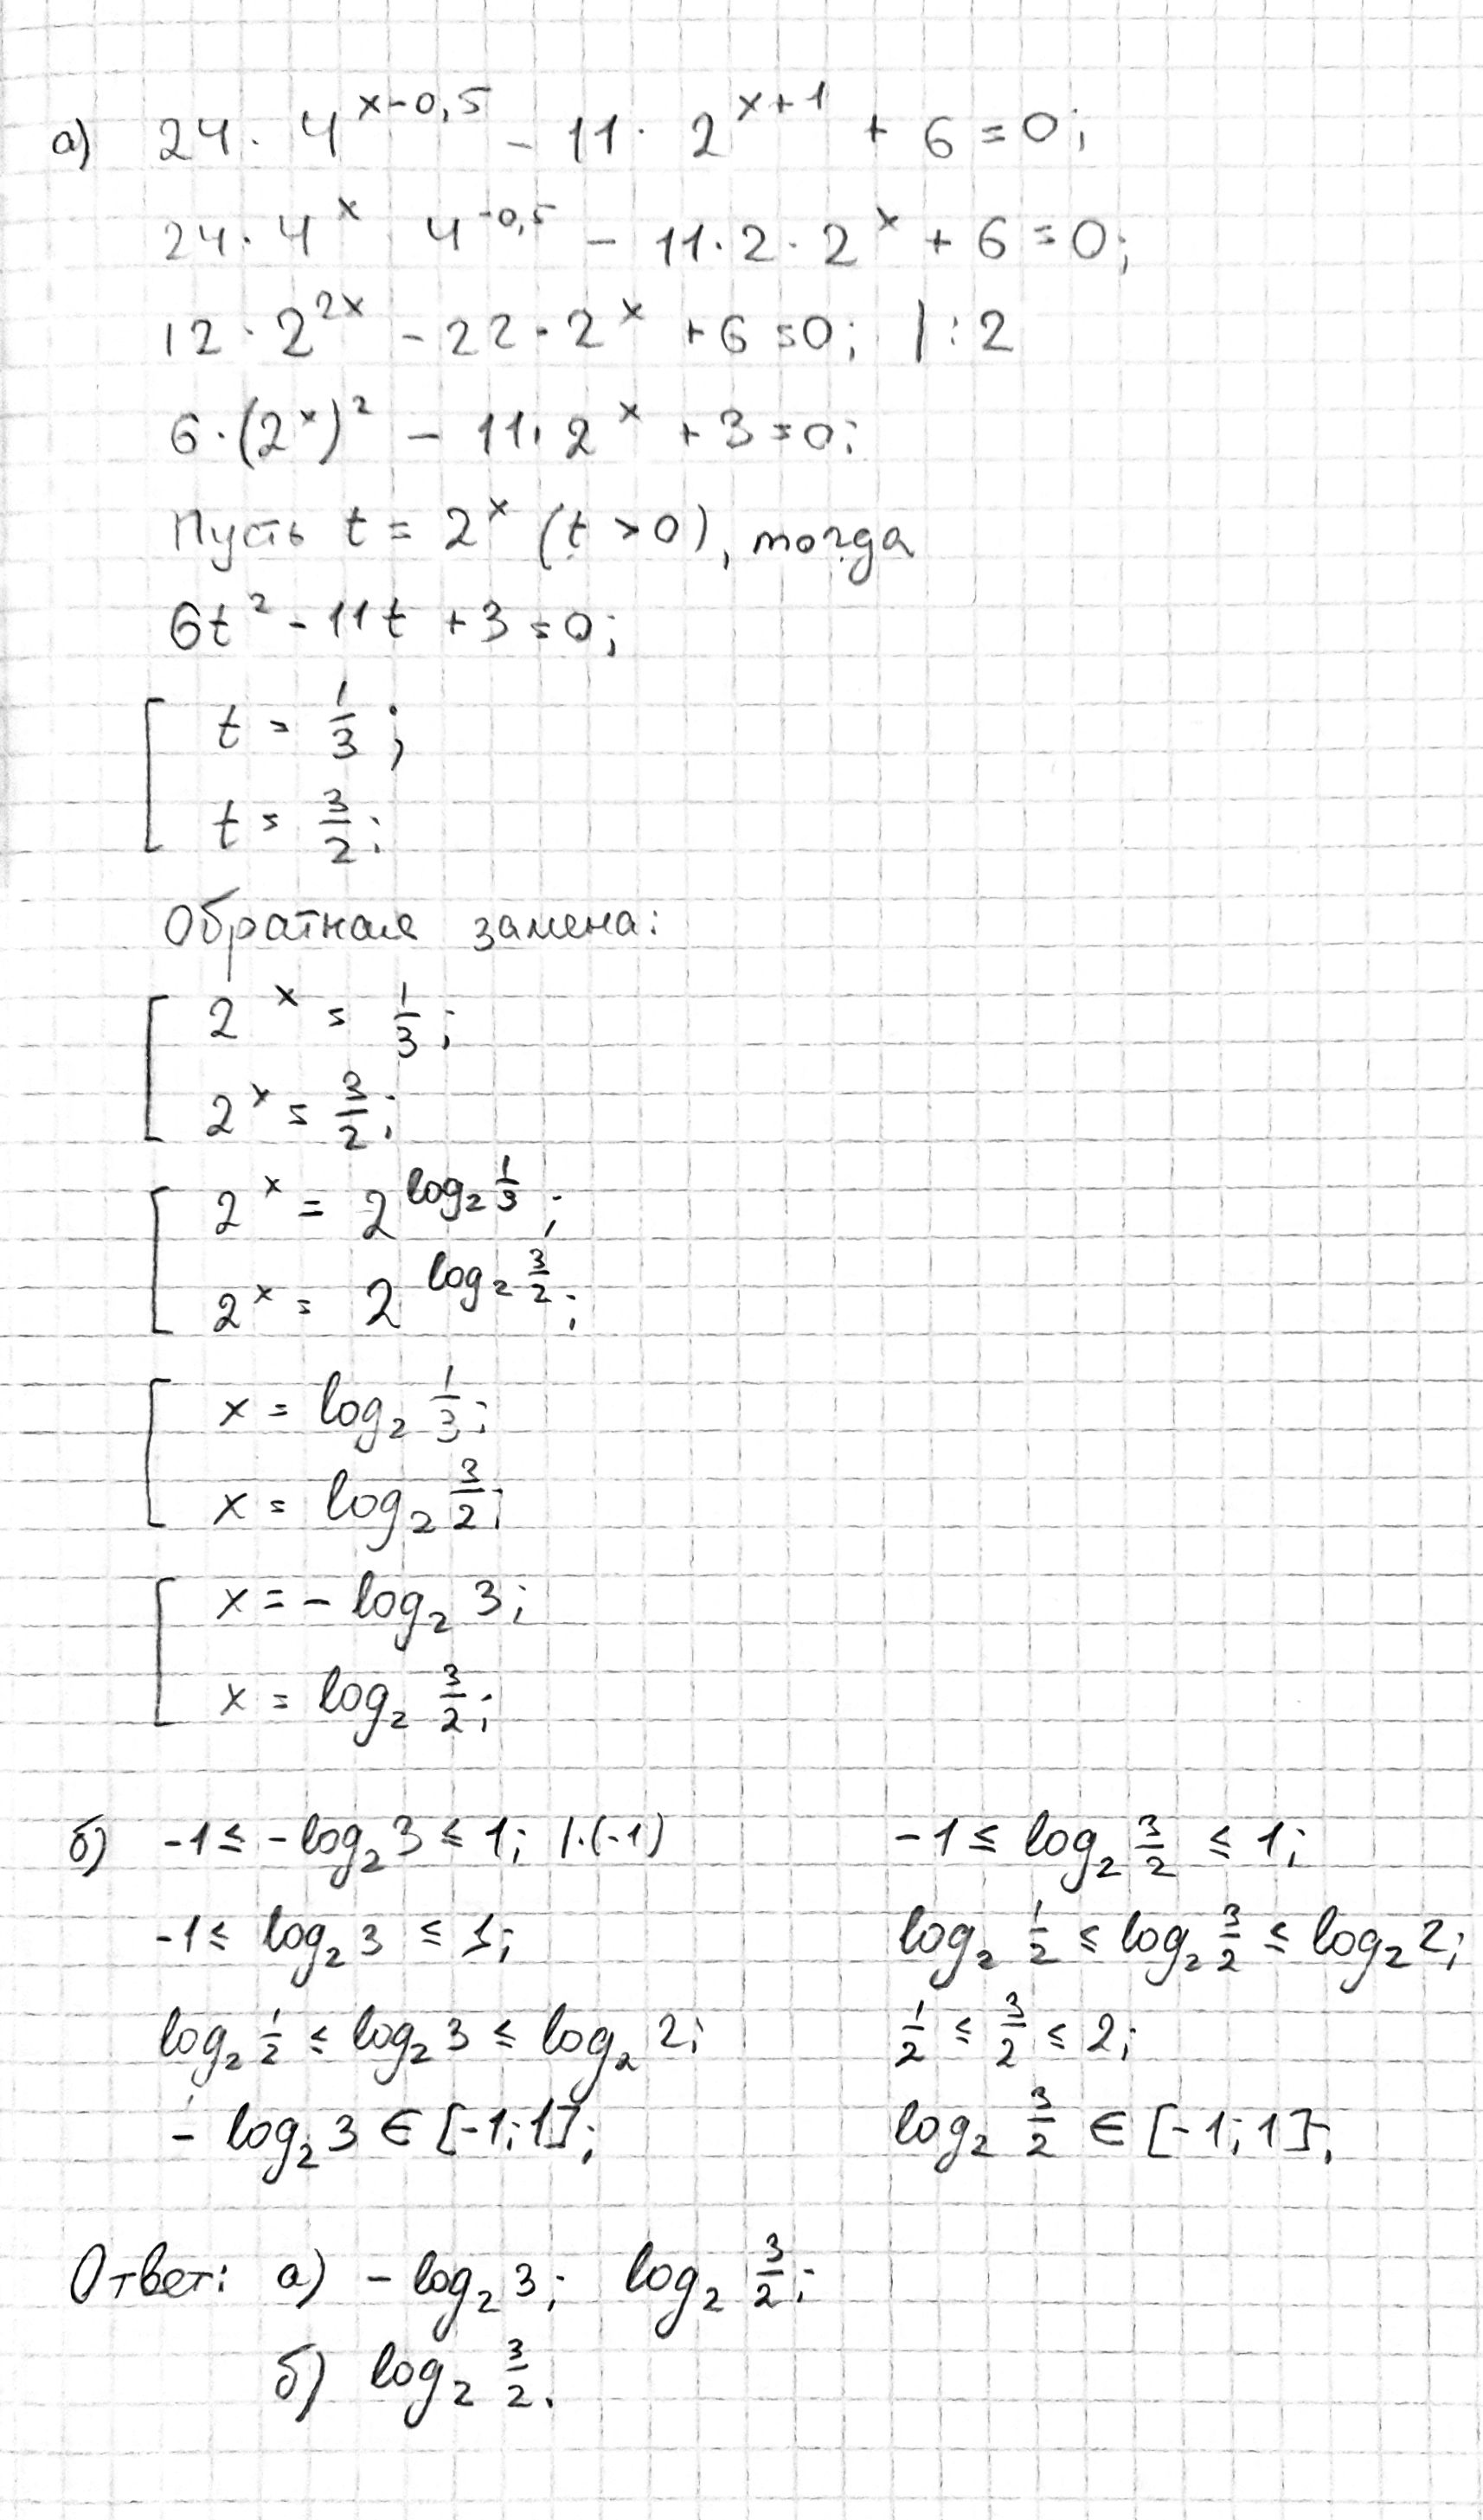 а) 24 · 4^{x-0,5} - 11 · 2^{x+1} + 6 = 0;
24 · 4^x · 4^{-0,5} - 11 · 2 · 2^x + 6 = 0;
12 · 2^{2x} - 22 · 2^x + 6 = 0; | : 2
6 · (2^x)^2 - 11 · 2^x + 3 = 0;
Пусть t = 2^x (t > 0), тогда
6t^2 - 11t + 3 = 0;
[ t = 1/3;
t = 3/2;
Обратная замена:
[ 2^x = 1/3;
2^x = 3/2;
[ 2^x = 2^{log_2 1/3};
2^x = 2^{log_2 3/2};
[ x = log_2 1/3;
x = log_2 3/2;
[ x = - log_2 3;
x = log_2 3/2;
б) -1 ≤ -log_2 3 ≤ 1; | · (-1)
-1 ≤ log_2 3 ≤ 1;
log_2 1/2 ≤ log_2 3 ≤ log_2 2;
- log_2 3 ∈ [-1; 1];
-1 ≤ log_2 3/2 ≤ 1;
log_2 1/2 ≤ log_2 3/2 ≤ log_2 2;
1/2 ≤ 3/2 ≤ 2;
log_2 3/2 ∈ [-1; 1];
Ответ: а) - log_2 3; log_2 3/2;
б) log_2 3/2.